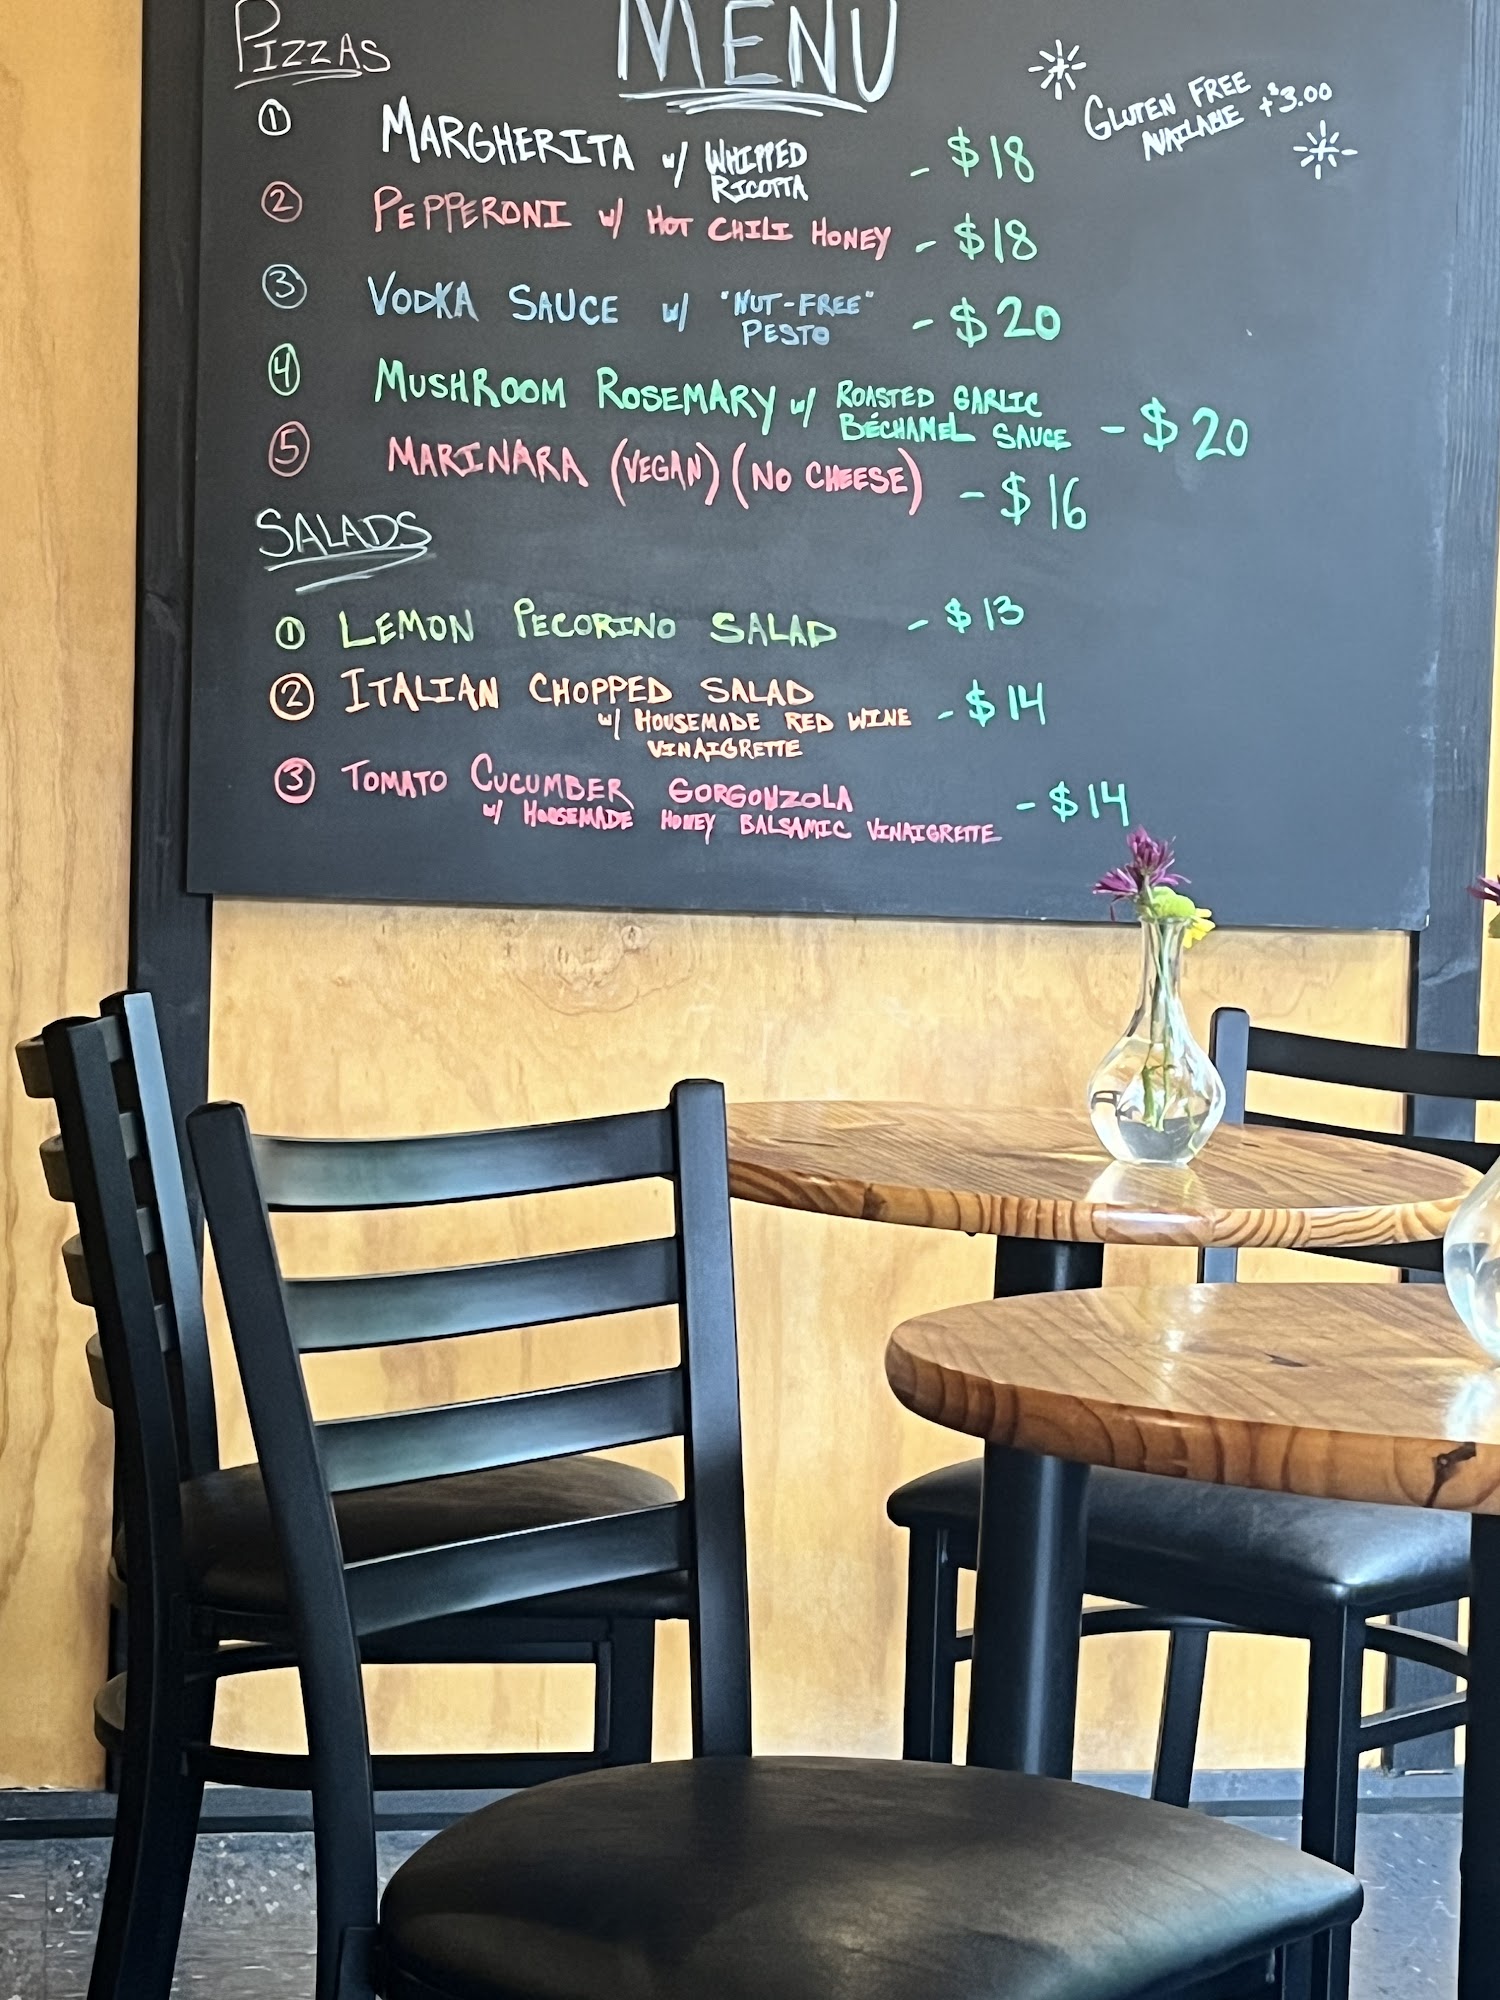 MENU
PIZZAS
GLUTEN FREE
AVAILABLE +$3.00
① MARGHERITA w/ WHIPPED
RICOTTA - $18
② PEPPERONI w/ HOT CHILI HONEY - $18
③ VODKA SAUCE w/ "NUT-FREE"
PESTO - $20
④ MUSHROOM ROSEMARY w/ ROASTED GARLIC
BÉCHAMEL SAUCE - $20
⑤ MARINARA (VEGAN) (NO CHEESE) - $16
SALADS
① LEMON PECORINO SALAD - $13
② ITALIAN CHOPPED SALAD
w/ HOUSEMADE RED WINE - $14
VINAIGRETTE
③ TOMATO CUCUMBER GORGONZOLA - $14
w/ HOUSEMADE HONEY BALSAMIC VINAIGRETTE